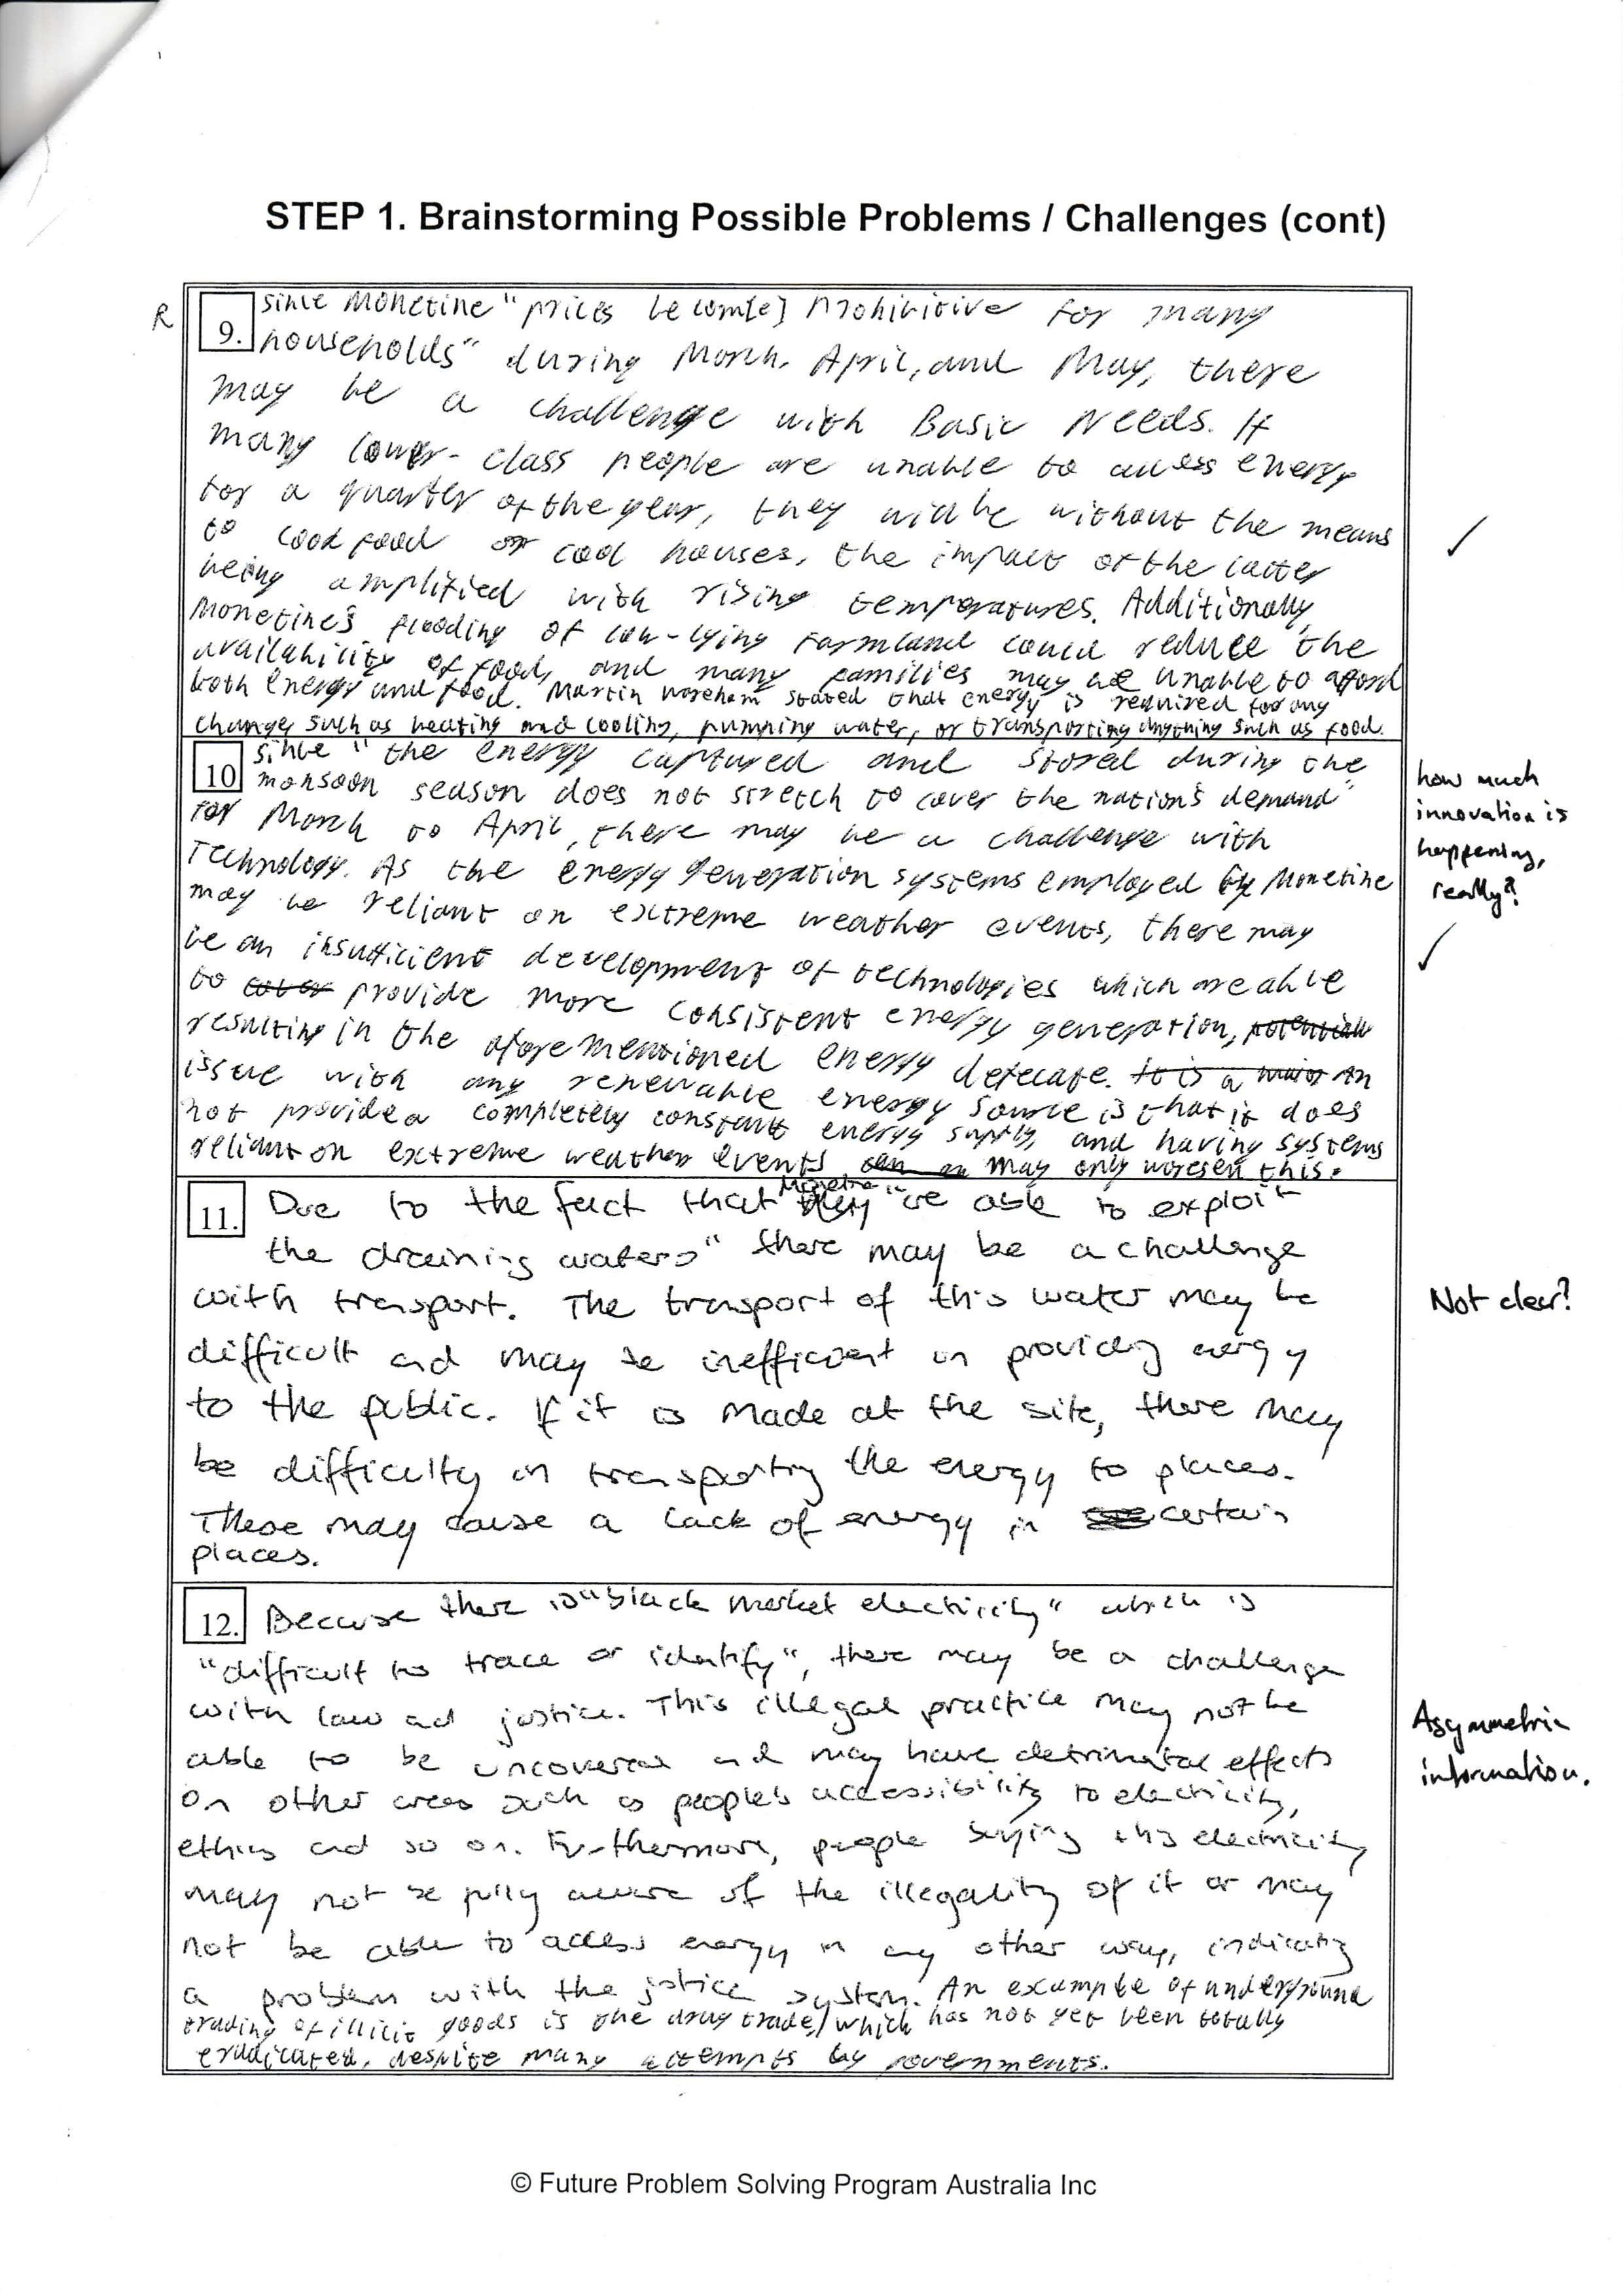 STEP 1. Brainstorming Possible Problems / Challenges (cont)
R
9. since Monetine "prices becom[e] prohibitive for many
households" during March, April, and May, there
may be a challenge with Basic Needs. If
many lower-class people are unable to access energy
for a quarter of the year, they will be without the means
to cook food or cool houses, the impact of the latter
being amplified with rising temperatures. Additionally,
Monetine's flooding of low-lying farmland could reduce the
availability of food, and many families may be unable to afford
both energy and food. Martin Wareham stated that energy is required for any
change, such as heating and cooling, pumping water, or transporting anything such as food.
✓
10 since "the energy captured and stored during the
monsoon season does not stretch to cover the nation's demand"
for March to April, there may be a challenge with
Technology. As the energy generation systems employed by Monetine
may be reliant on extreme weather events, there may
be an insufficient development of technologies which are able
to cover provide more consistent energy generation, potentially
resulting in the aforementioned energy defecate. It is a major An
issue with any renewable energy source is that it does
not provide a completely constant energy supply, and having systems
reliant on extreme weather events can may only worsen this.
how much
innovation is
happening,
really?
✓
11. Due to the fact that they Monetine "are able to exploit
the draining waters" there may be a challenge
with transport. The transport of this water may be
difficult and may be inefficient in providing energy
to the public. If it is made at the site, there may
be difficulty in transporting the energy to places.
These may cause a lack of energy in certain
places.
Not clear?
12. Because there is "black market electricity" which is
"difficult to trace or identify", there may be a challenge
with law and justice. This illegal practice may not be
able to be uncovered and may have detrimental effects
on other areas such as people's accessibility to electricity,
ethics and so on. Furthermore, people buying this electricity
may not be fully aware of the illegality of it or may
not be able to access energy in any other way, indicating
a problem with the justice system. An example of underground
trading of illicit goods is the drug trade, which has not yet been totally
eradicated, despite many attempts by governments.
Asymmetric
information.
© Future Problem Solving Program Australia Inc